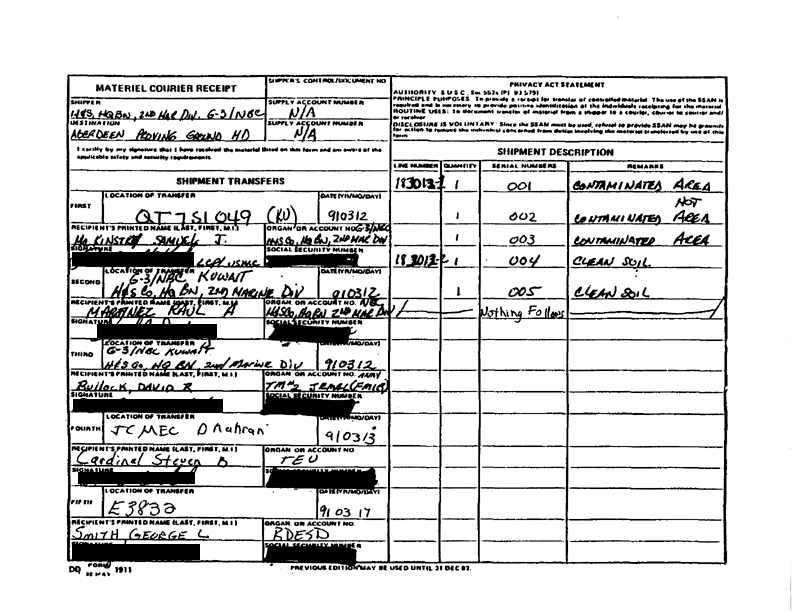 MATERIEL COURIER RECEIPT
SHIPPER'S CONTROL/DOCUMENT NO
PRIVACY ACT STATEMENT
AUTHORITY 5 U.S.C., Sec 552a (PL 93-579)
PRINCIPLE PURPOSES: To provide a receipt for transfer of controlled material. The use of the SSAN is
required and is necessary to provide positive identification of the individuals receiving for the material
ROUTINE USES: To document transfer of material from a shipper to a courier, courier to courier and/
or receiver
DISCLOSURE IS VOLUNTARY Since the SSAN must be used, refusal to provide SSAN may be grounds
for action to remove the individual concerned from duties involving the material transferred by use of this
form
SHIPPER
H&S, HQ BN, 2ND MAR DIV. G-3/NBC
SUPPLY ACCOUNT NUMBER
N/A
DESTINATION
ABERDEEN PROVING GROUND MD
SUPPLY ACCOUNT NUMBER
N/A
I certify by my signature that I have received the material listed on this form and am aware of the
applicable safety and security requirements.
SHIPMENT DESCRIPTION
LINE NUMBER QUANTITY SERIAL NUMBERS REMARKS
183013-2 1 001 CONTAMINATED AREA
NOT
1 002 CONTAMINATED AREA
1 003 CONTAMINATED AREA
183013-2 1 004 CLEAN SOIL
1 005 CLEAN SOIL
Nothing Follows
SHIPMENT TRANSFERS
FIRST
LOCATION OF TRANSFER
QT 751049 (KU)
DATE(YR/MO/DAY)
910312
RECIPIENT'S PRINTED NAME (LAST, FIRST, M.I.)
Mc KINSTRY SAMUEL J.
ORGAN OR ACCOUNT NO G-3/NBC
H&S Co, HQ BN, 2ND MAR DIV
SIGNATURE
LCPL USMC
SOCIAL SECURITY NUMBER
SECOND
LOCATION OF TRANSFER
G-3/NBC KUWAIT
H&S Co, HQ BN, 2ND MARINE DIV
DATE(YR/MO/DAY)
910312
RECIPIENT'S PRINTED NAME (LAST, FIRST, M.I.)
MARTINEZ RAUL A
ORGAN. OR ACCOUNT NO. NBC
H&S Co, HQ BN 2ND MAR DIV
SIGNATURE
SOCIAL SECURITY NUMBER
THIRD
LOCATION OF TRANSFER
G-3/NBC KUWAIT
H&S Co, HQ BN, 2nd Marine Div
DATE(YR/MO/DAY)
910312
RECIPIENT'S PRINTED NAME (LAST, FIRST, M.I.)
Bullock, DAVID R
ORGAN OR ACCOUNT NO. ARMY
SIGNATURE
SOCIAL SECURITY NUMBER
FOURTH
LOCATION OF TRANSFER
JCMEC Dhahran
DATE(YR/MO/DAY)
910313
RECIPIENT'S PRINTED NAME (LAST, FIRST, M.I.)
Cardinal Steven B
ORGAN OR ACCOUNT NO
TEU
SIGNATURE
FIFTH
LOCATION OF TRANSFER
E3832
DATE(YR/MO/DAY)
91 03 17
RECIPIENT'S PRINTED NAME (LAST, FIRST, M.I.)
SMITH GEORGE L
ORGAN OR ACCOUNT NO.
RDESD
SIGNATURE
SOCIAL SECURITY NUMBER
DD FORM 1911
PREVIOUS EDITION MAY BE USED UNTIL 31 DEC 83.